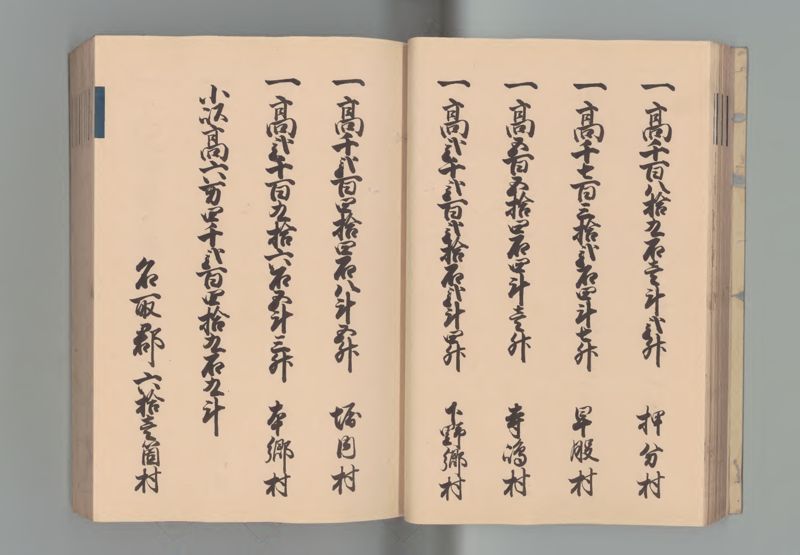 一高千百八拾九石壱斗弐升 押分村
一高千七百三拾弐石四斗七升 早股村
一高五百五拾四石四斗壱升 寺嶋村
一高弐千弐百弐拾石弐斗四升 下野郷村
一高千弐百四拾四石八斗五升 堀内村
一高弐千百九拾六石五斗三升 本郷村
小以高六万四千弐百四拾九石九斗
名取郡六拾壱箇村